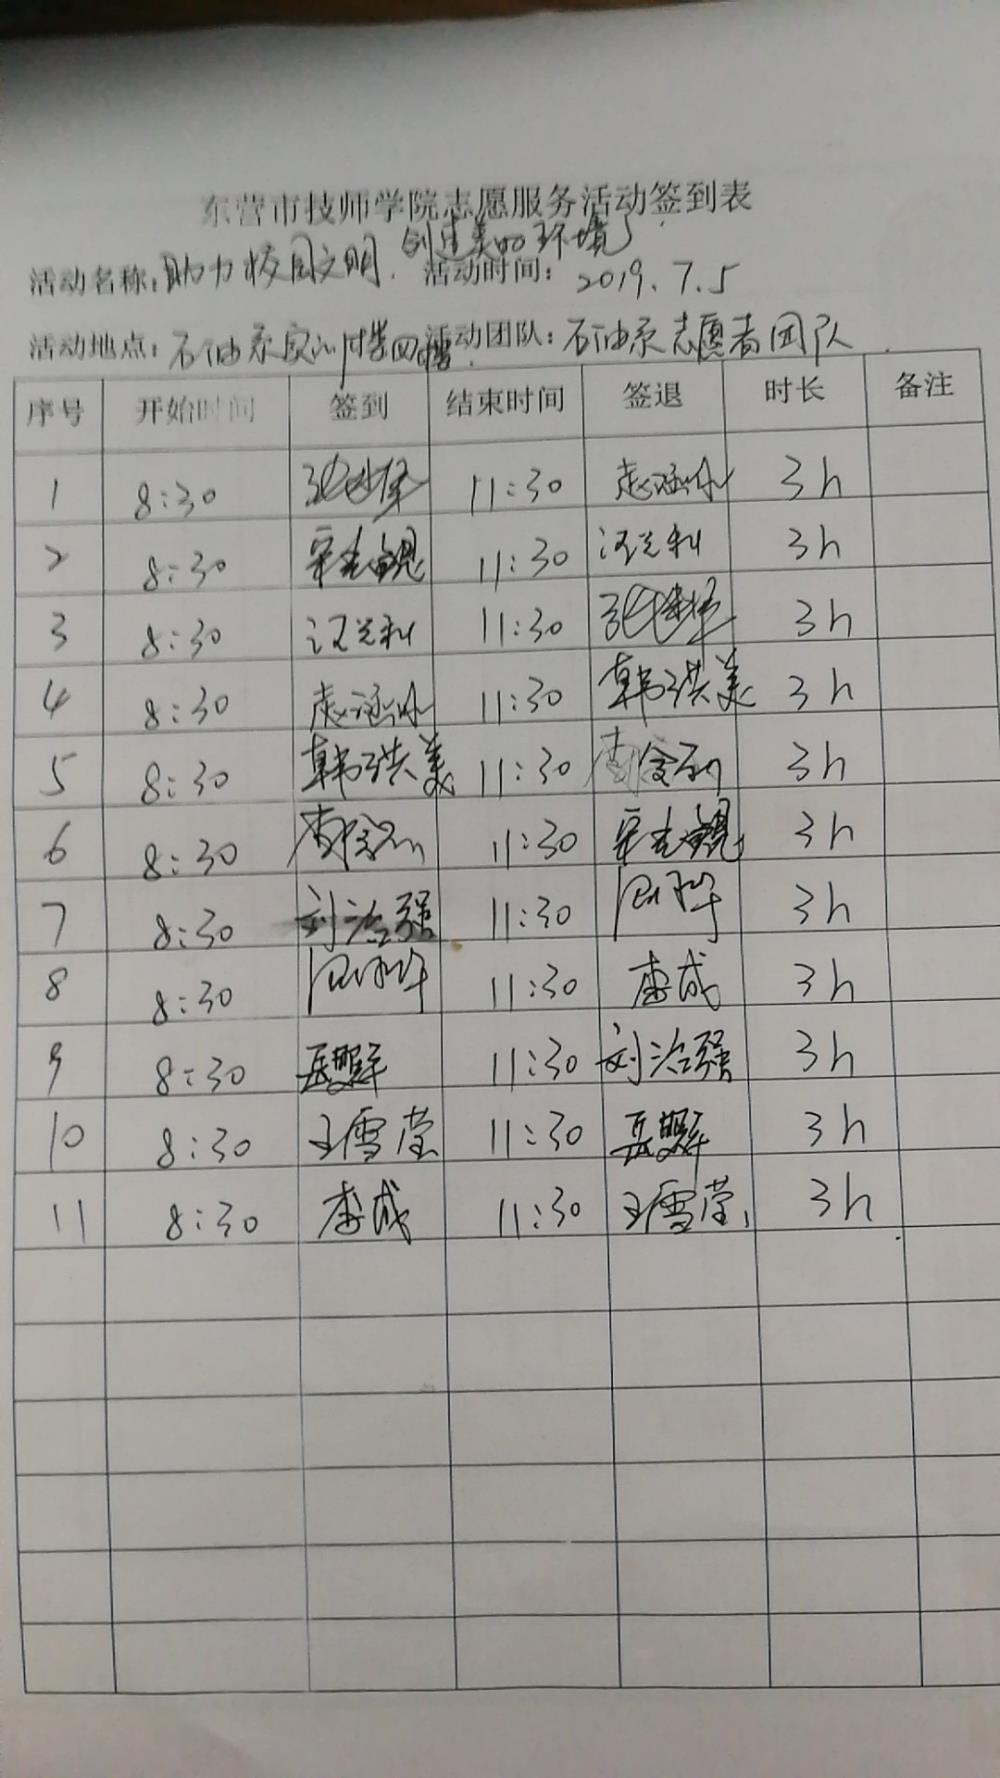 东营市技师学院志愿服务活动签到表
活动名称：助力校园文明，创建美的环境 活动时间：2019.7.5
活动地点：石油系实训楼四楼 活动团队：石油系志愿者团队
序号 开始时间 签到 结束时间 签退 时长 备注
1 8:30 11:30 赵涵冰 3h
2 8:30 11:30 汉兰利 3h
3 8:30 汉兰利 11:30 3h
4 8:30 赵涵冰 11:30 韩琪美 3h
5 8:30 韩琪美 11:30 3h
6 8:30 11:30 3h
7 8:30 刘治强 11:30 3h
8 8:30 11:30 李成 3h
9 8:30 11:30 刘治强 3h
10 8:30 王雪莹 11:30 3h
11 8:30 李成 11:30 王雪莹 3h